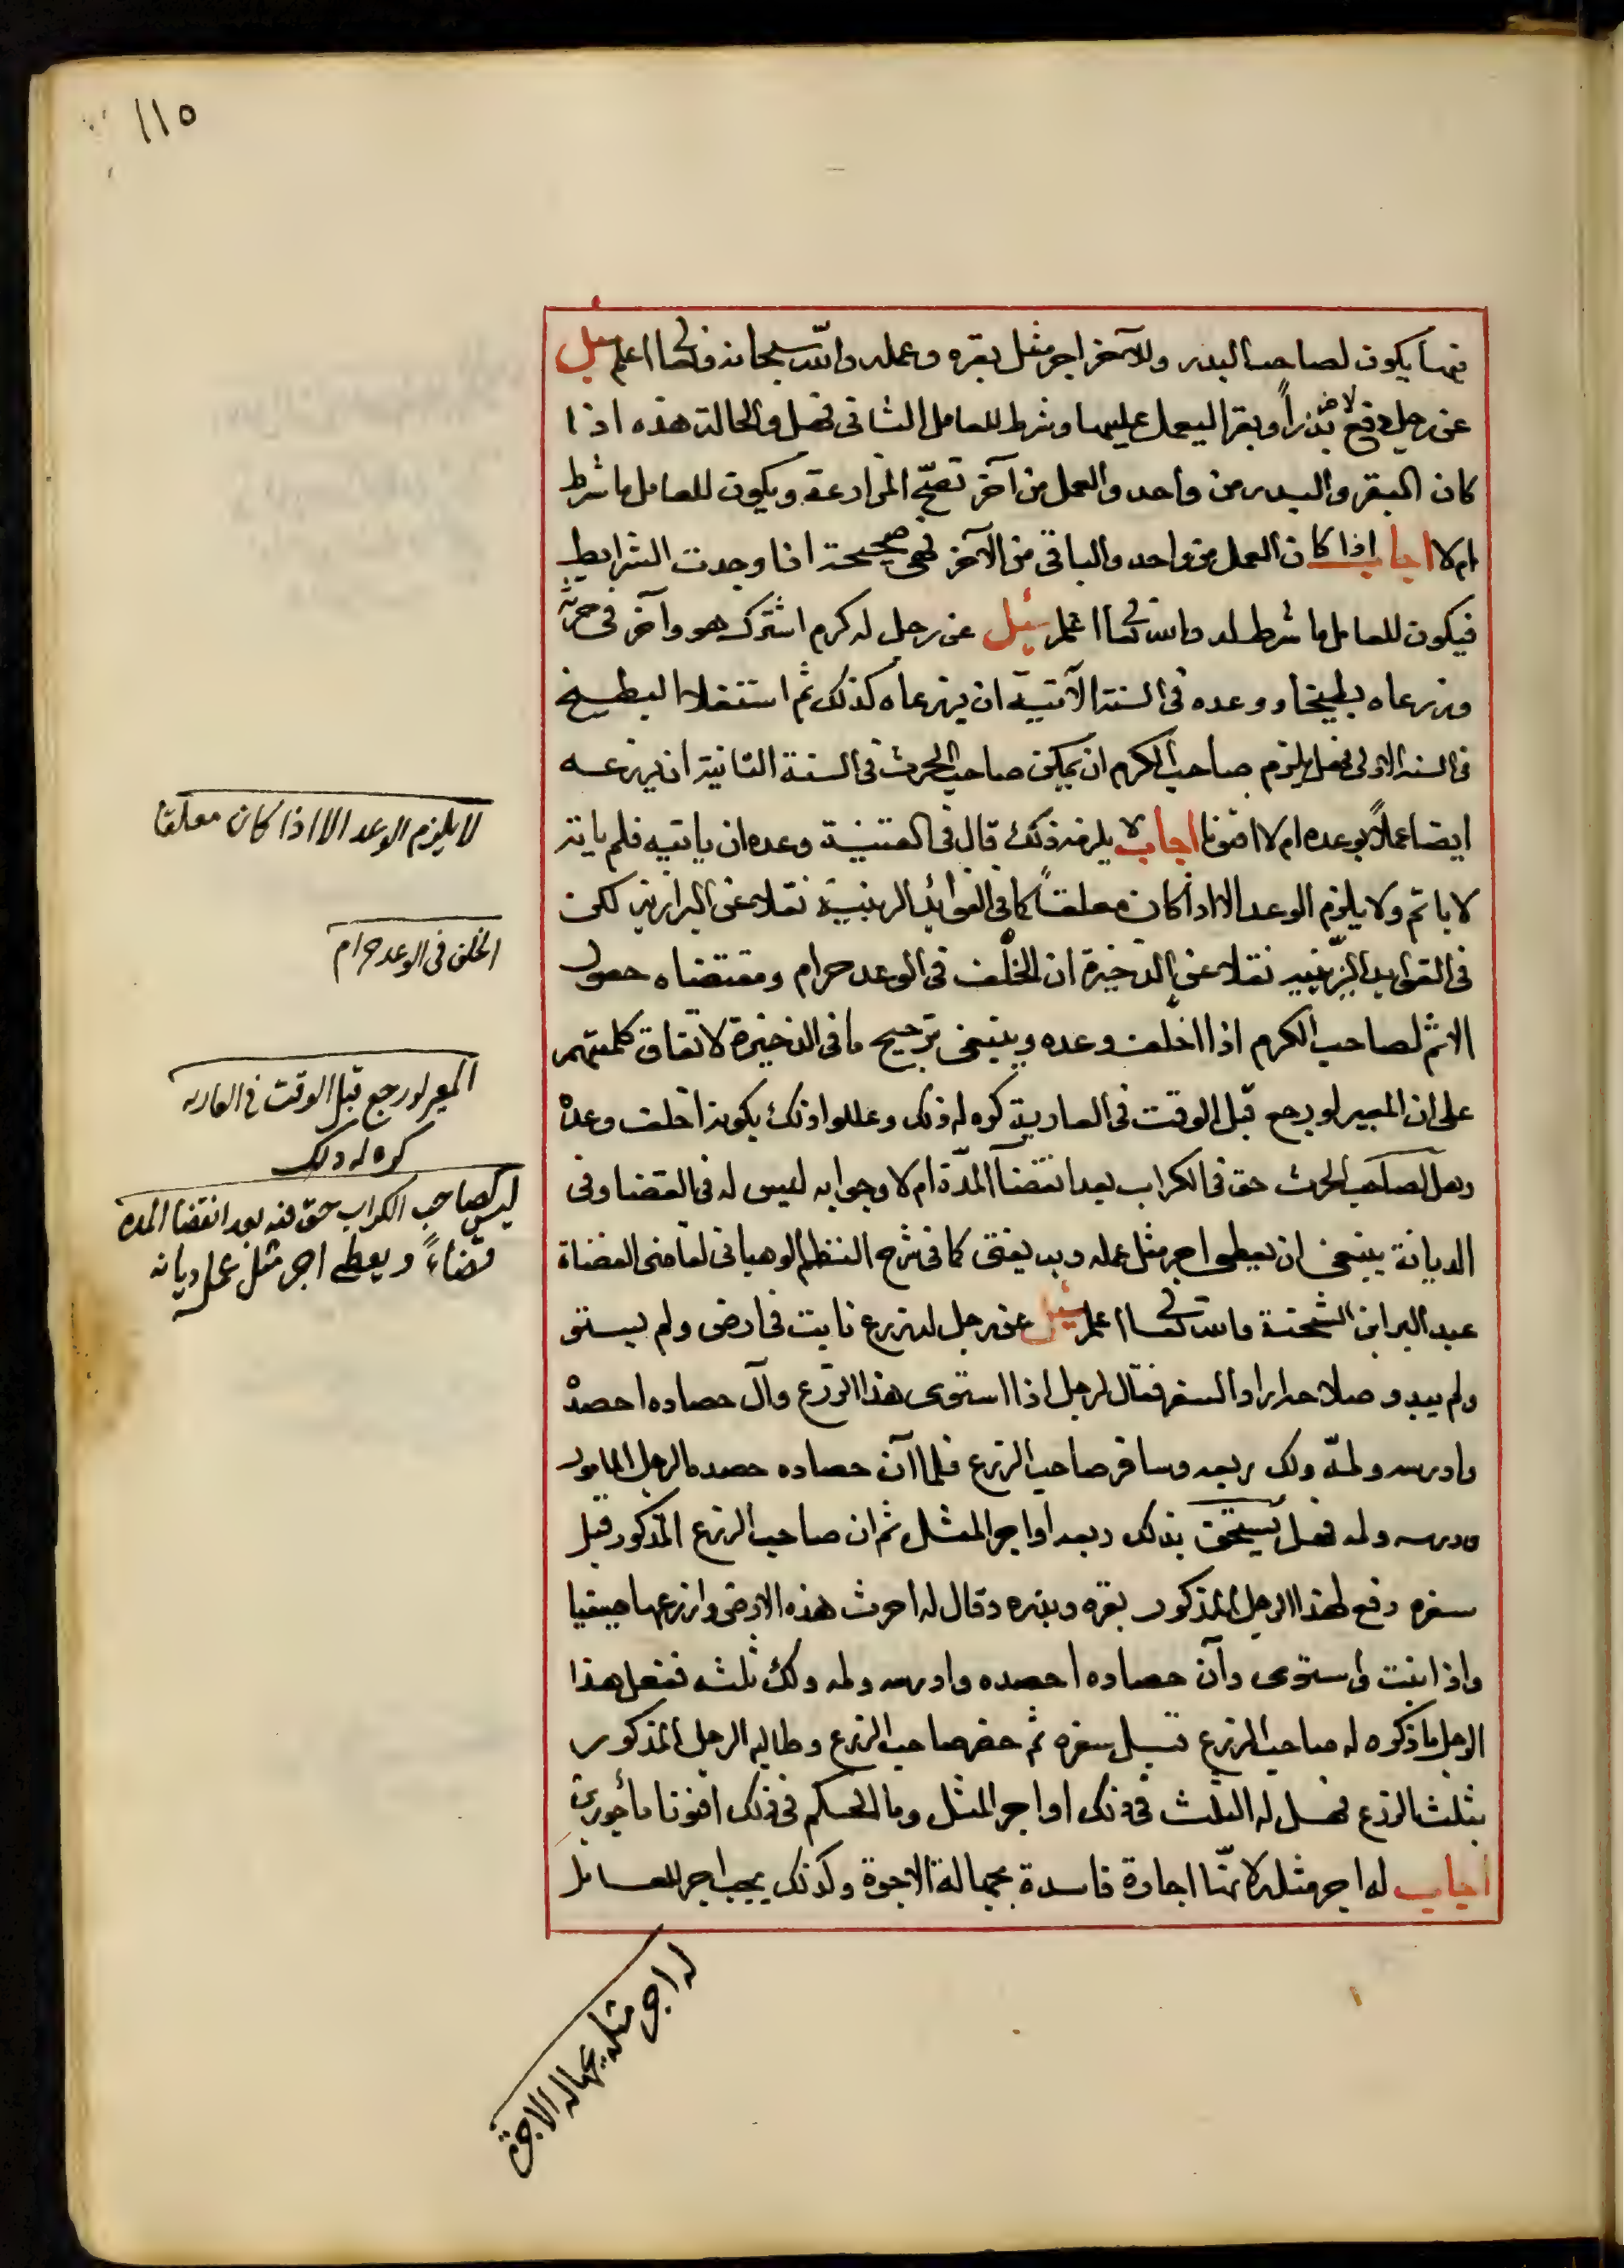 ١١٥
فيها يكون لصاحب البدر وللآخر اجر مثل بقره وعمله والله سبحانه وتعالى اعلم سئل
عن رجل دفع لآخر بذراً وبقرا ليعمل عليها وشرط للعامل الثانى فهل والحالة هذه اذا
كان البقر والبدر من واحد والعمل من آخر تصحّ المزارعة ويكون للعامل ما شرط
ام لا اجاب اذا كان العمل من واحد والباقى من الآخر فهى صحيحة اذا وجدت الشرايط
فيكون للعامل ما شرط له والله تعالى اعلم سئل عن رجل له كرم اشترك هو وآخر فى حرثه
وزرعاه بطيخا ووعده فى السنة الآتية ان يزرعاه كذلك ثم استغلا البطيخ
فى السنة الاولى فهل يلزم صاحب الكرم ان يمكن صاحب الحرث فى السنة الثانية ان يزرعه
ايضا عملاً بوعده ام لا افتونا اجاب لا يلزمه ذلك قال فى القنية وعده ان ياتيه فلم ياته
لا ياثم ولا يلزم الوعد الا اذا كان معلقاً كما فى الفوائد الزينية نقلا عن البزازية لكن
فى الفوايد الزّينيه نقلا عن الذخيرة ان الخلْف فى الوعد حرام ومقتضاه حصول
الاثم لصاحب الكرم اذا اخلف وعده وينبغى ترجيح ما فى الذخيرة لاتفاق كلمتهم
على ان المعير لو رجع قبل الوقت فى العارية كره له ذلك وعللوا ذلك بكونه اخلف وعده
وهل لصاحب الحرث حق فى الكراب بعد انقضآ المدّة ام لا وجوابه ليس له فى القضا وفى
الديانة ينبغى ان يعطى اجر مثل عمله وبه يفتى كما فى شرح النظم الوهبانى لقاضى القضاة
عبد البر ابن الشحنة والله تعالى اعلم سئل عن رجل له زرع نابت فى ارض ولم يستو
ولم يبدو صلاحه اراد السفر فقال لرجل اذا استوى هذا الزرع وآن حصاده احصده
وادرسه ولمّه ولك ربعه وسافر صاحب الزرع فلما آن حصاده حصده الرجل المامور
ودرسه ولمه فهل يستحق بذلك ربعه او اجر المثل ثم ان صاحب الزرع المذكور قبل
سفره دفع لهذا الرجل المذكور بقره وبذره وقال له احرث هذه الارض وازرعها صيفيا
واذا نبت واستوى وآن حصاده احصده وادرسه ولمه ولك ثلثه ففعل هذا
الرجل ما ذكره له صاحب الزرع قبل سفره ثم حضر صاحب الزرع وطالبه الرجل المذكور
بثلث الزرع فهل له الثلث فى ذلك او اجر المثل وما الحكم فى ذلك افتونا مأجورين
اجاب له اجر مثله لانّها اجارة فاسدة بجهالة الاجرة وكذلك يجب اجر للعامل
لا يلزم الوعد الا اذا كان معلقا
الخلف فى الوعد حرام
المعير لو رجع قبل الوقت فى العاريه
كره له ذلك
ليس لصاحب الكراب حق فيه بعد انقضا المدة
قضاءً ويعطى اجر مثل عمله ديانه
له اجر مثله بجهالة الاجرة